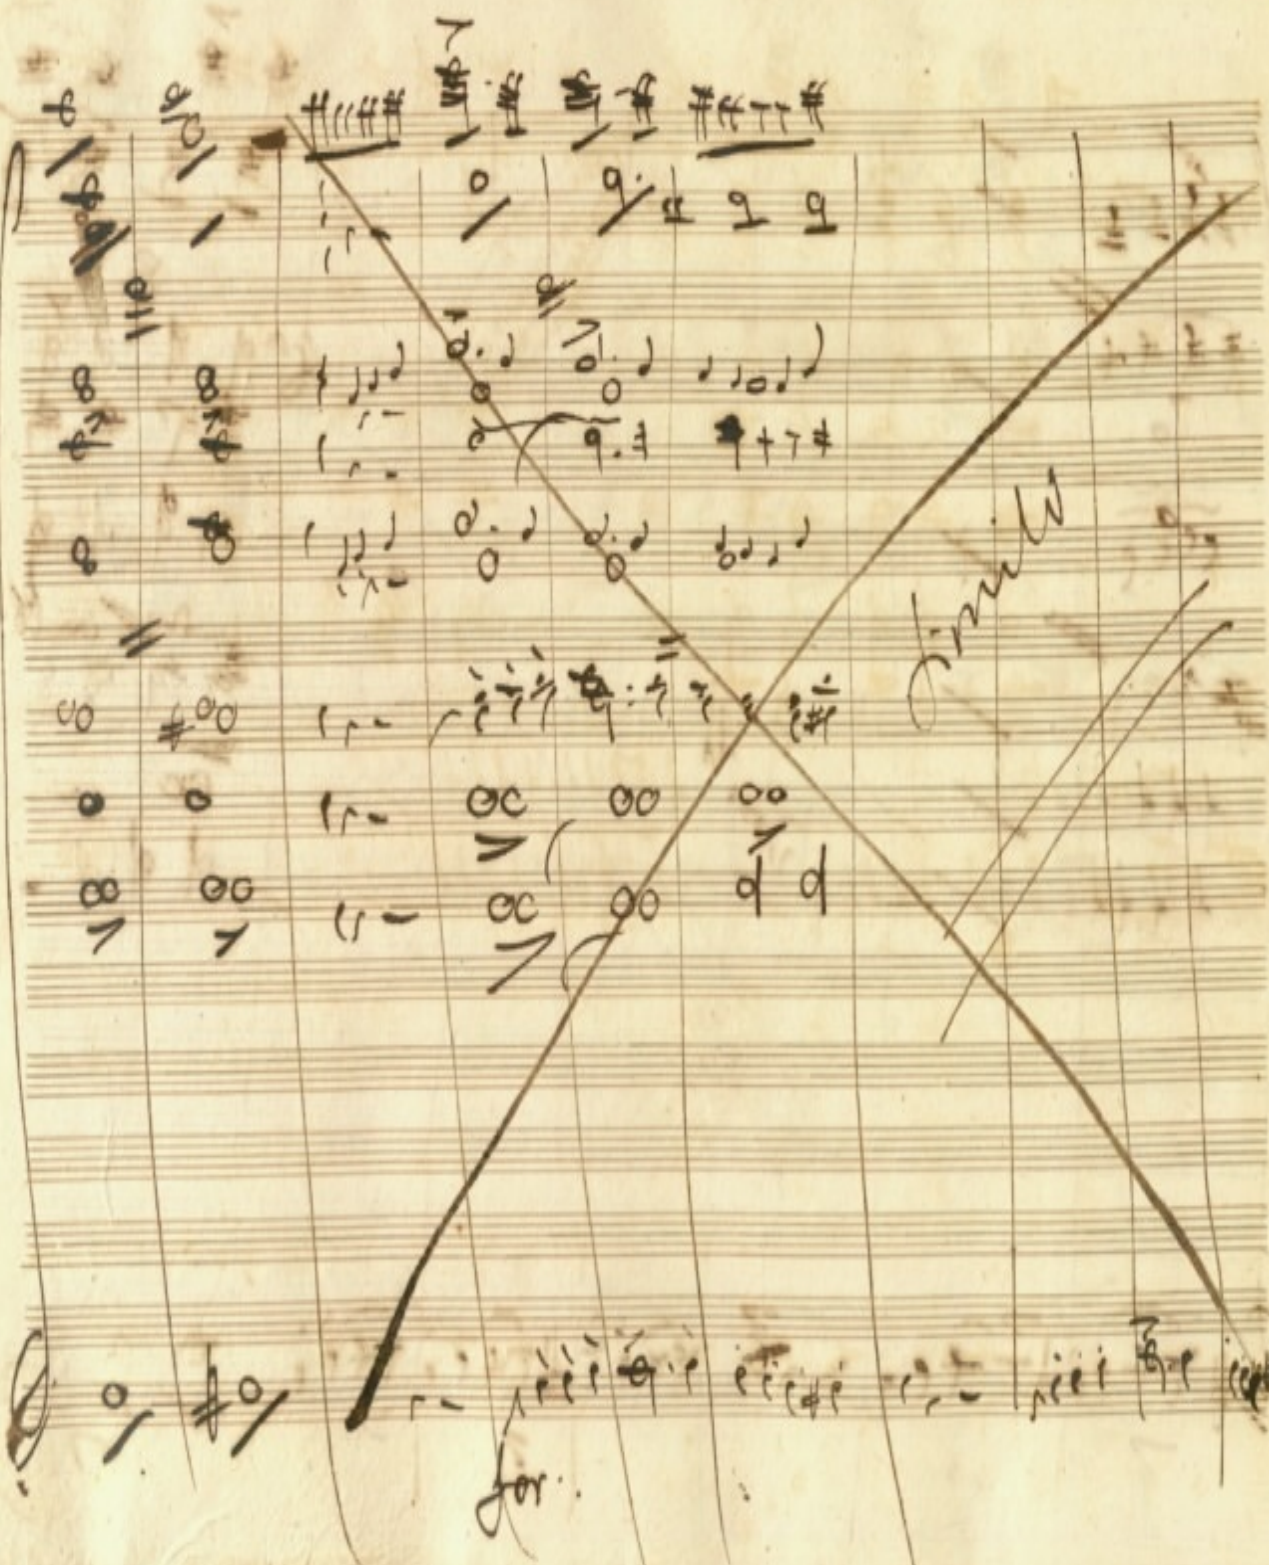 Simile
for.